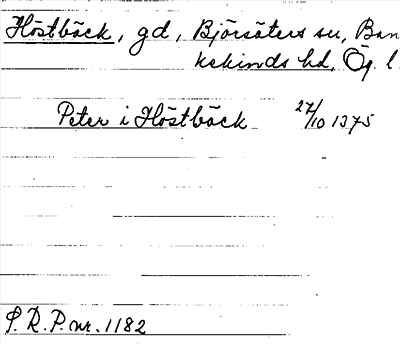 Höstbäck, gd, Björsäters sn, Ban
kekinds hd, Ög. l
Peter i Höstbäck 27/10 1375
S. R. P. nr. 1182